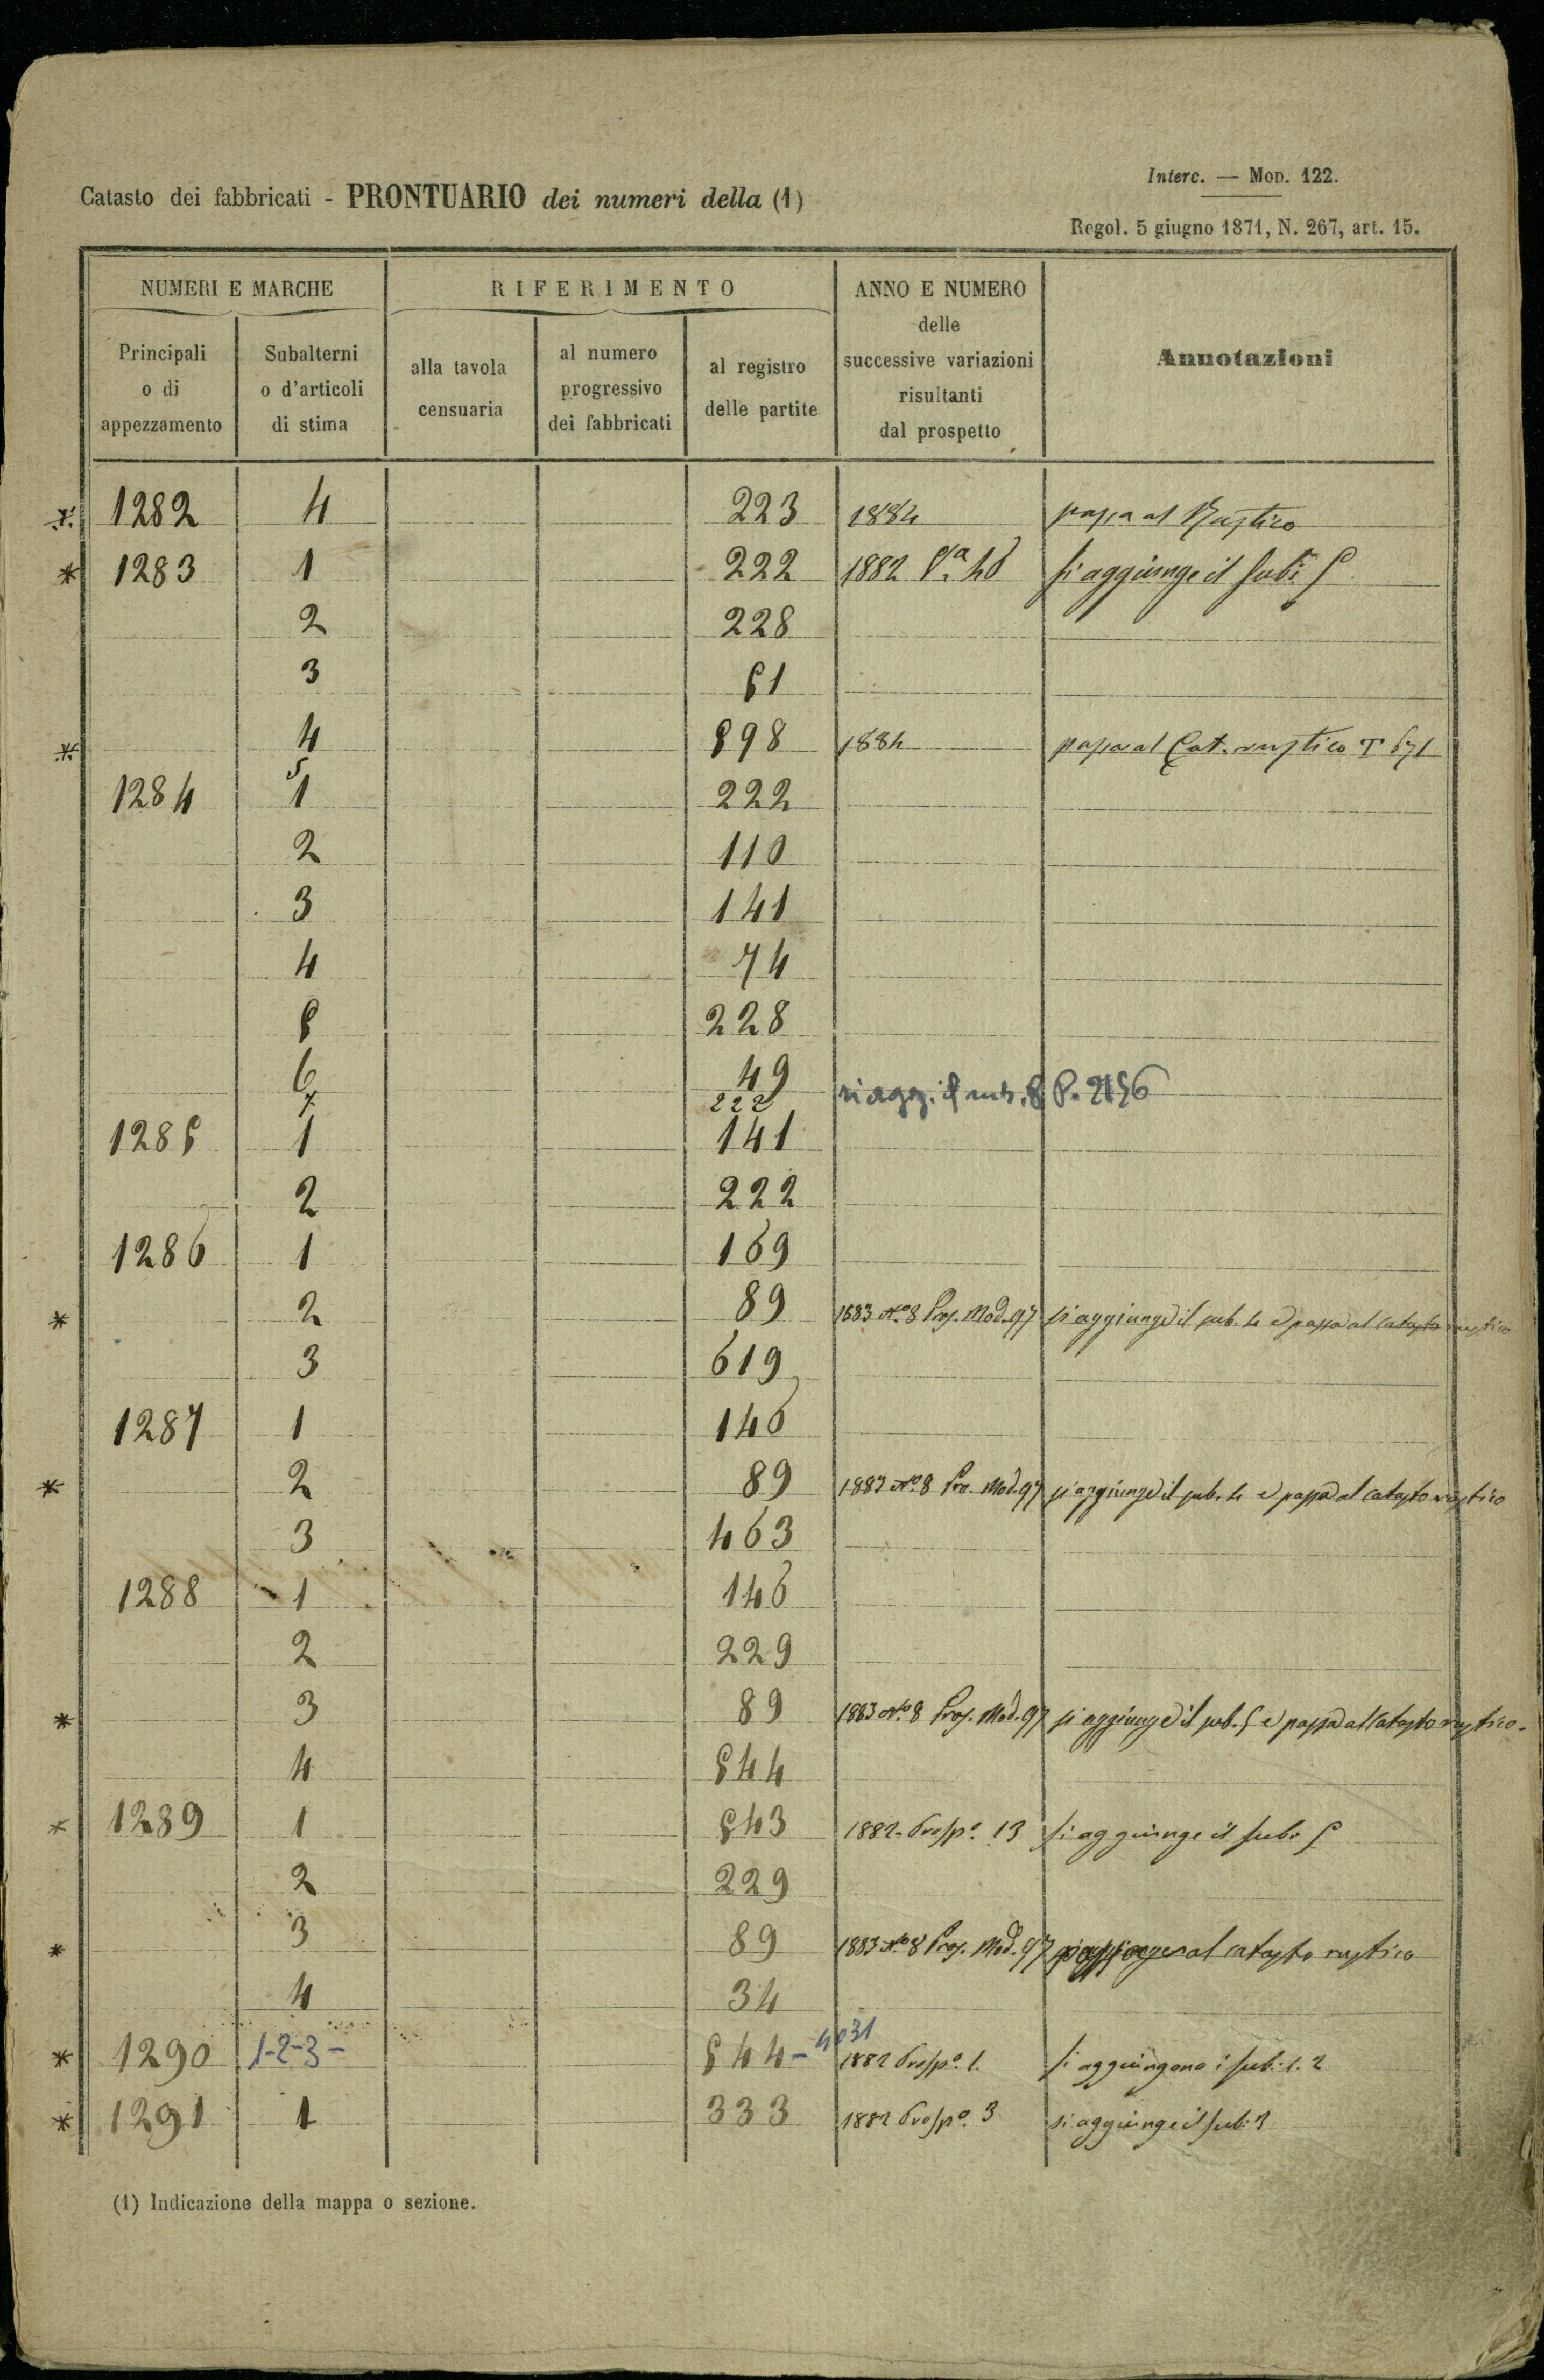 Interc. — Mod. 122.
Catasto dei fabbricati - PRONTUARIO dei numeri della (1)
Regol. 5 giugno 1871, N. 267, art. 15.
NUMERI E MARCHE RIFERIMENTO ANNO E NUMERO delle successive variazioni risultanti dal prospetto Annotazioni
Principali o di appezzamento Subalterni o d'articoli di stima alla tavola censuaria al numero progressivo dei fabbricati al registro delle partite
* 1282 4 223 1884 passa al Rustico
* 1283 1 222 1882 si aggiunge il sub: 5
2 228
3 51
* 4 598 1884 passa al Cat. rustico
5
1284 1 222
2 110
3 141
4 74
5 228
6 49
7 222 si agg. il sub. 8 P.
1285 1 141
2 222
1286 1 169
* 2 89 1883 No. 8 Pros. Mod. 97 si aggiunge il sub. 4 e passa al catasto rustico
3 619
1287 1 146
* 2 89 1883 No. 8 Pro. Mod. 97 si aggiunge il sub. 4 e passa al catasto rustico
3 463
1288 1 146
2 229
* 3 89 1883 No. 8 Pros. Mod. 97 si aggiunge il sub. 5 e passa al Catasto rustico.
4 544
* 1289 1 543 1882. Prospo. 13 si aggiunge il sub: 5
2 229
* 3 89 1883 No. 8 Pros. Mod. 97 al catasto rustico
4 34
* 1290 1-2-3- 544 - 4031 1882 Prospo. 1. si aggiungono i sub: 1. 2
* 1291 1 333 1882 Prospo. 3 si aggiunge il sub: 3
(1) Indicazione della mappa o sezione.